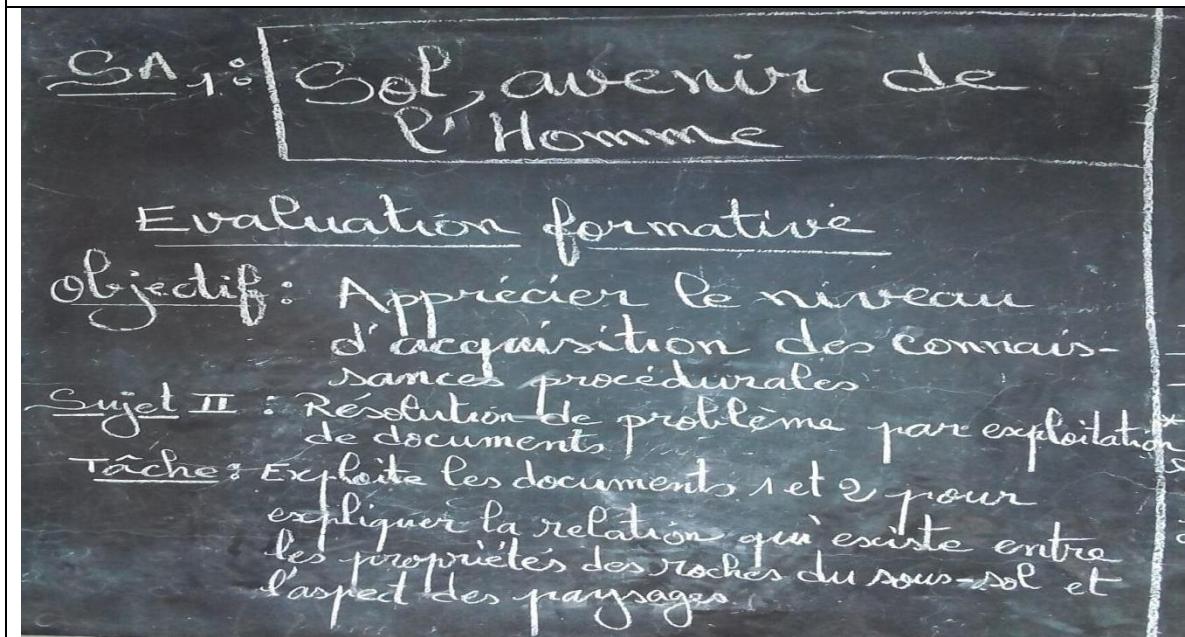 SA 1 : Sol, avenir de
l'Homme
Evaluation formative
Objectif : Apprécier le niveau
d'acquisition des connais-
sances procédurales
Sujet II : Résolution de problème par exploitation
de documents
Tâche : Exploite les documents 1 et 2 pour
expliquer la relation qui existe entre
les propriétés des roches du sous-sol et
l'aspect des paysages